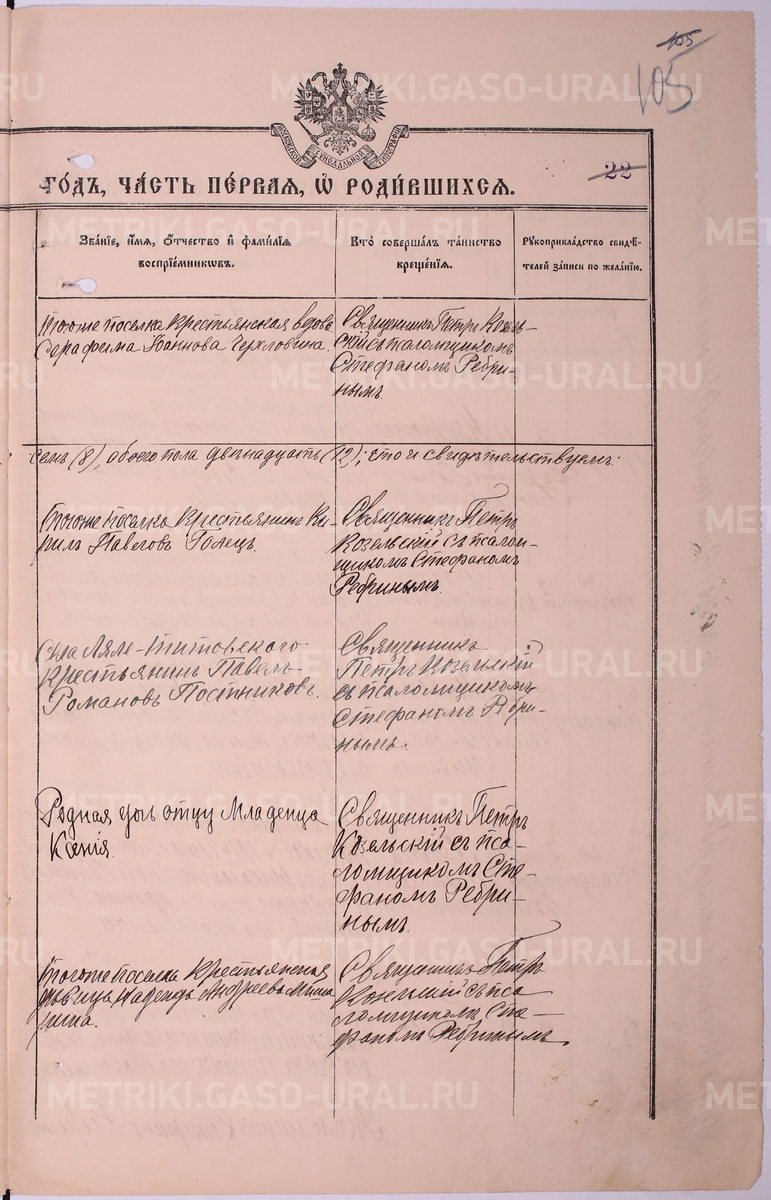 105
105
МОСКОВСКОЙ СѴНОДАЛЬНОЙ ТИПОГРАФІИ
22
го́дъ, ча́сть пе́рвая, ѡ҆ роди́вшихсѧ.
Зва́нїе, и҆́мѧ, ѻ҆́тчество и҆ фами́лїѧ
воспрїе́мникѡвъ.
Кто̀ соверша́лъ та́инство
креще́нїѧ.
Рꙋкоприкла́дство свидѣ́-
телей за́писи по жела́нїю.
Тогоже поселка крестьянская вдова
Серафима Іоаннова
Священникъ Петръ Козель-
скій съ псаломщикомъ
Стефаномъ Ребри-
нымъ.
(8), обоего пола двенадцать (12); Что и свидѣтельствуемъ:
Тогоже поселка крестьянинъ Ки-
рилъ Павловъ Гонецъ.
Священникъ Петръ
Козельскій съ псалом-
щикомъ Стефаномъ
Ребринымъ.
Села Ляля-Титовского
крестьянинъ Павелъ
Романовъ Постниковъ.
Священникъ
Петръ Козельскій
съ псаломщикомъ
Стефаномъ Ребри-
нымъ.
Родная дочь отцу младенца
Ксенія.
Священникъ Петръ
Козельскій съ пса-
ломщикомъ Сте-
фаномъ Ребри-
нымъ.
Тогоже поселка крестьянская
дѣвица Надежда Андреева
Священникъ Петръ
Козельскій съ пса-
ломщикомъ Сте-
фаномъ Ребринымъ.
METRIKI.GASO-URAL.RU